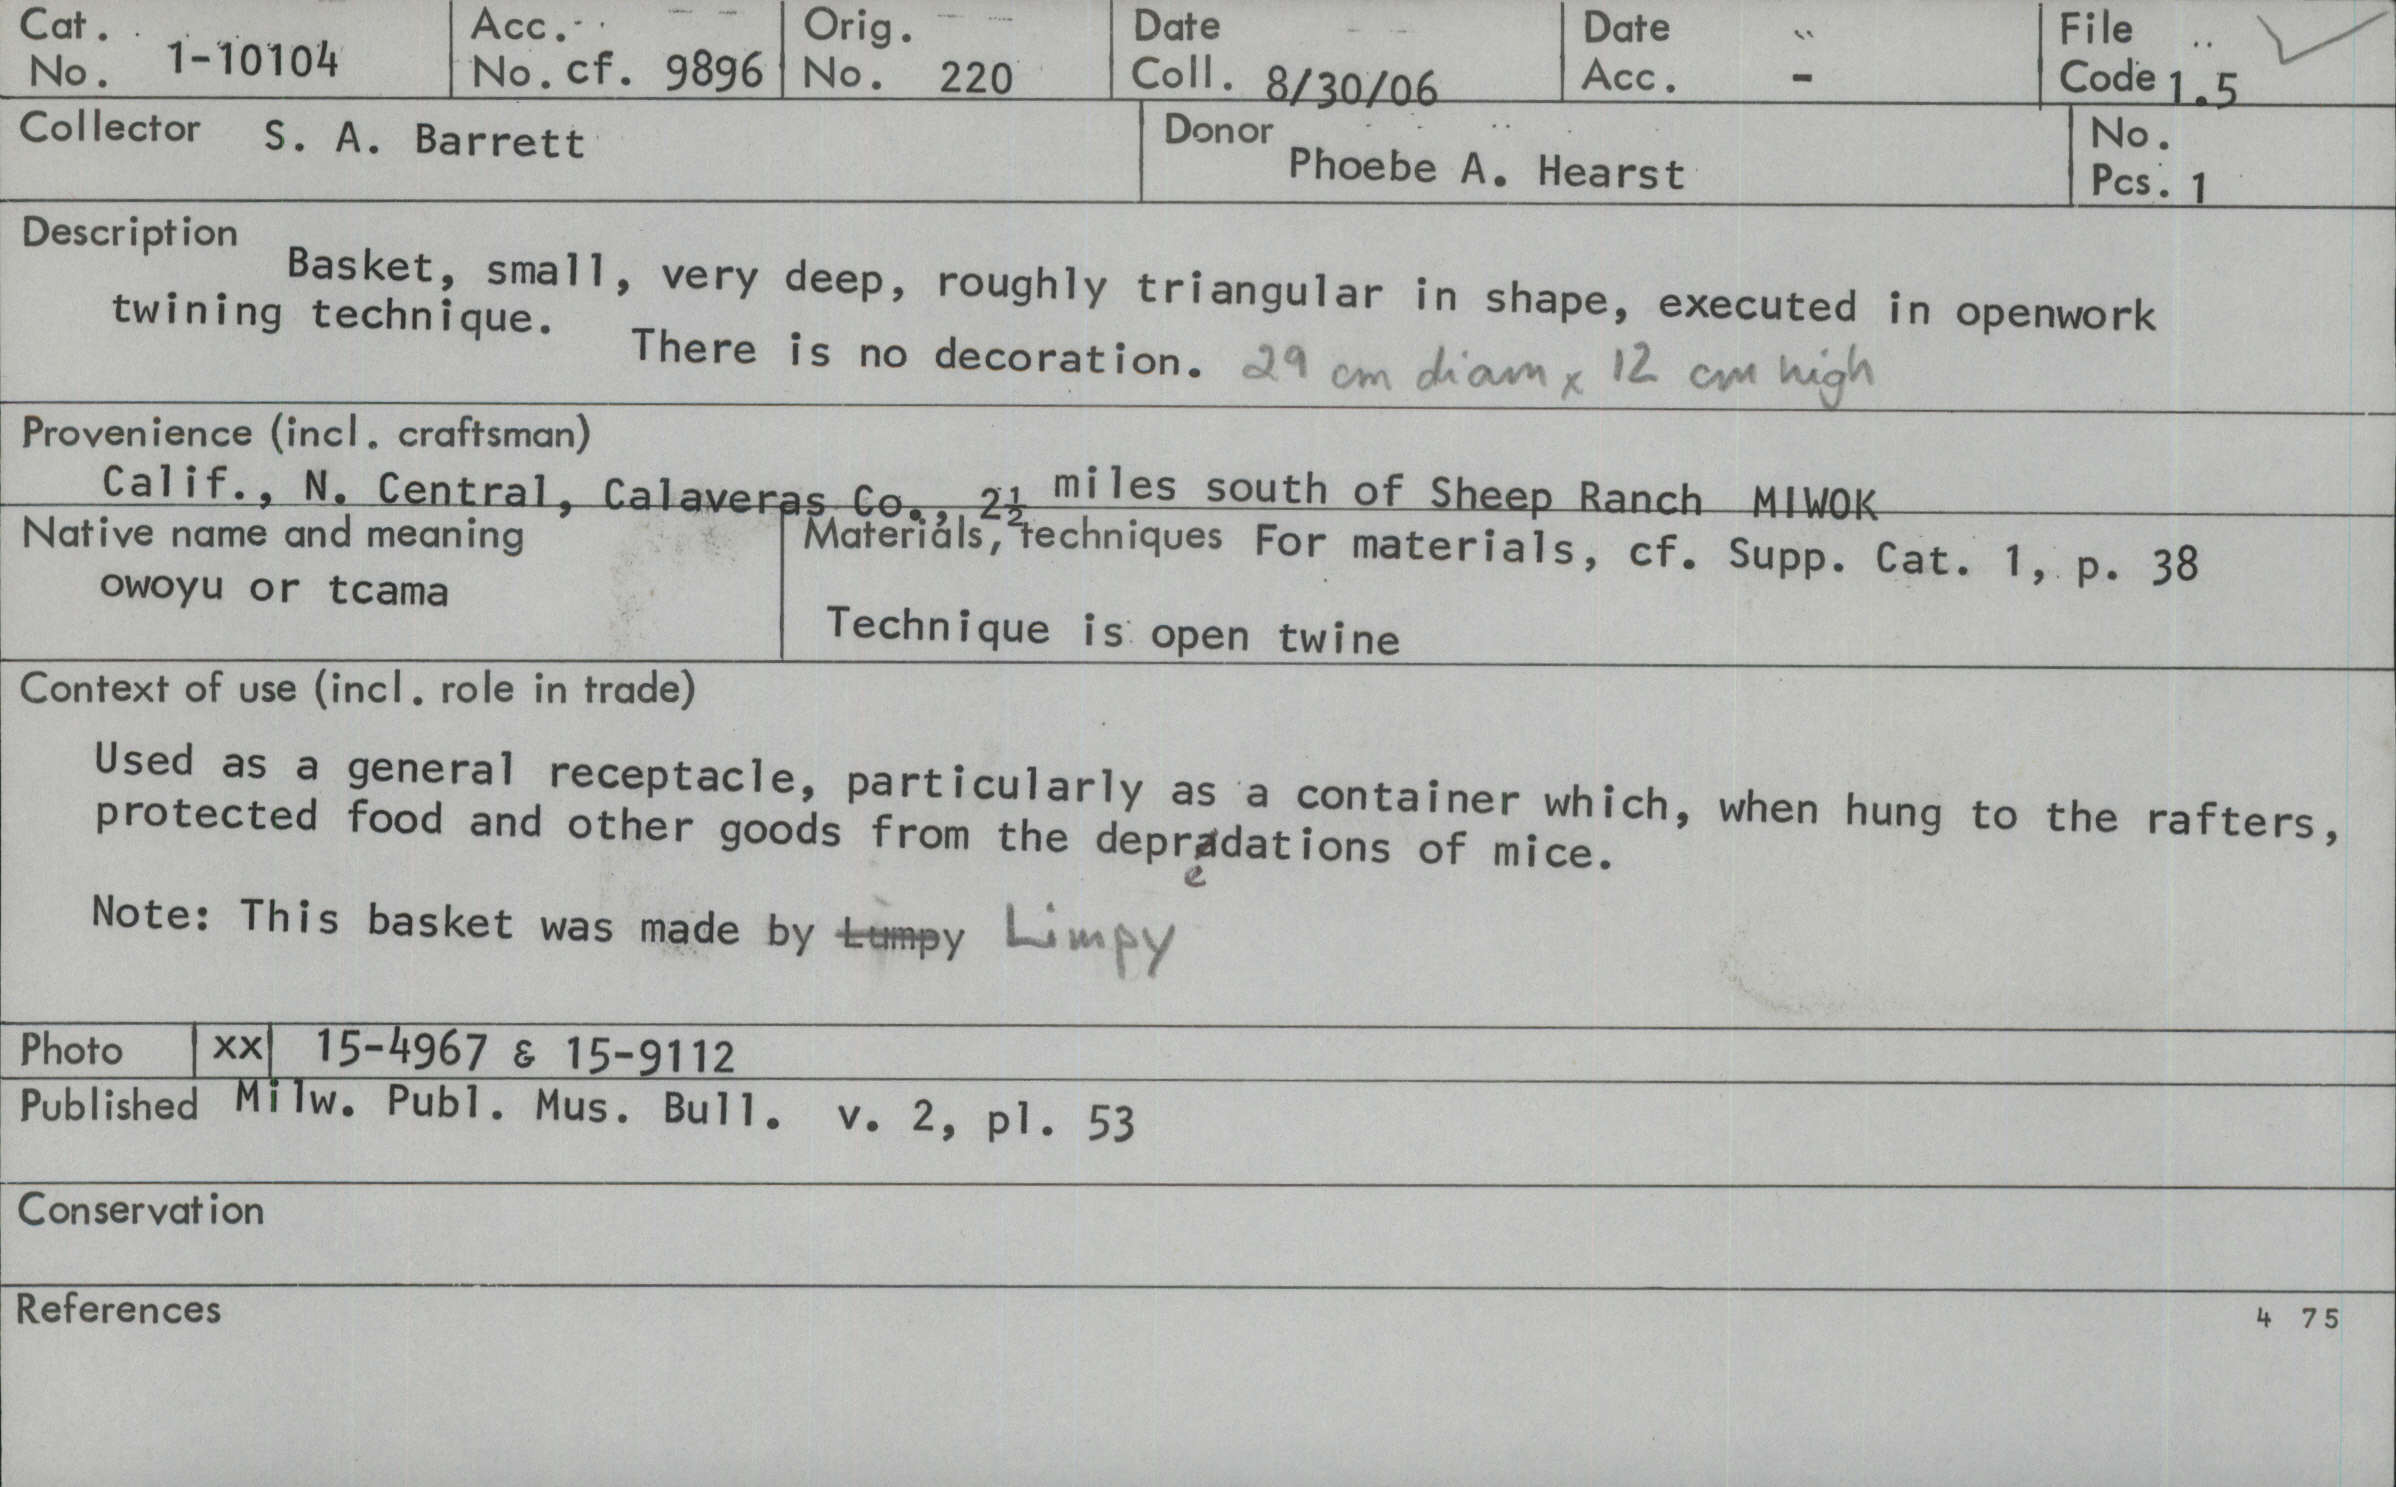 Cat. No. 1-10104
Acc. No. cf. 9896
Orig. No. 220
Date Coll. 8/30/06
Date Acc. -
File Code 1.5
Collector S. A. Barrett
Donor Phoebe A. Hearst
No. Pcs. 1
Description
Basket, small, very deep, roughly triangular in shape, executed in openwork
twining technique. There is no decoration. 29 cm diam x 12 cm high
Provenience (incl. craftsman)
Calif., N. Central, Calaveras Co., 2½ miles south of Sheep Ranch MIWOK
Native name and meaning
owoyu or tcama
Materials, techniques For materials, cf. Supp. Cat. 1, p. 38
Technique is open twine
Context of use (incl. role in trade)
Used as a general receptacle, particularly as a container which, when hung to the rafters,
protected food and other goods from the depradations of mice.
e
Note: This basket was made by Lumpy Limpy
Photo xx 15-4967 & 15-9112
Published Milw. Publ. Mus. Bull. v. 2, pl. 53
Conservation
References
4 75